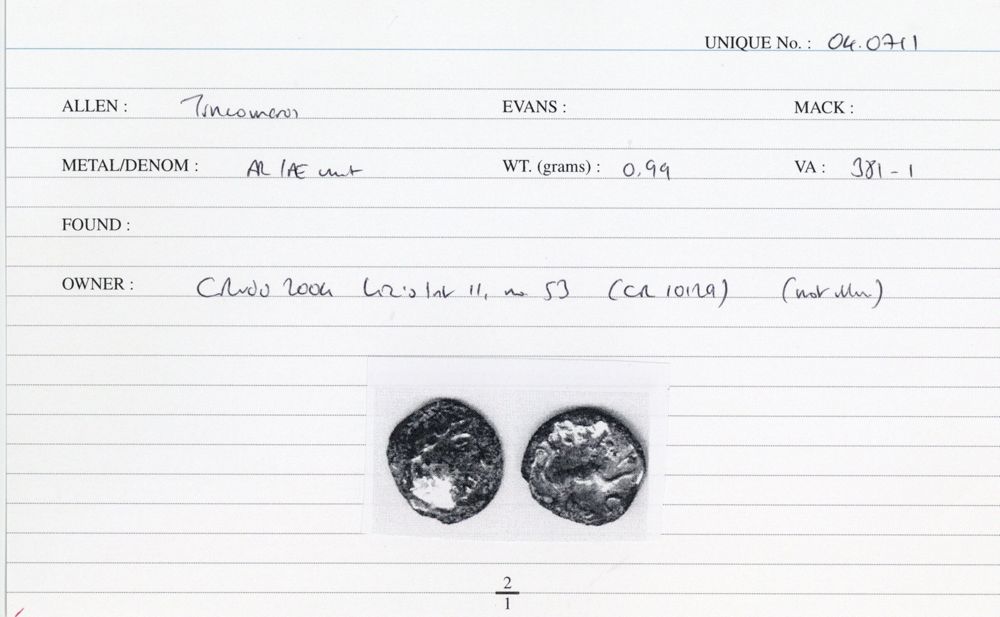 UNIQUE No. : 04.0711
ALLEN : Tincomaros EVANS : MACK :
METAL/DENOM : AR/AE unit WT. (grams) : 0.99 VA : 381-1
FOUND :
OWNER : 2004 List 11, no 53 (CR 10129) (not illus)
2
1